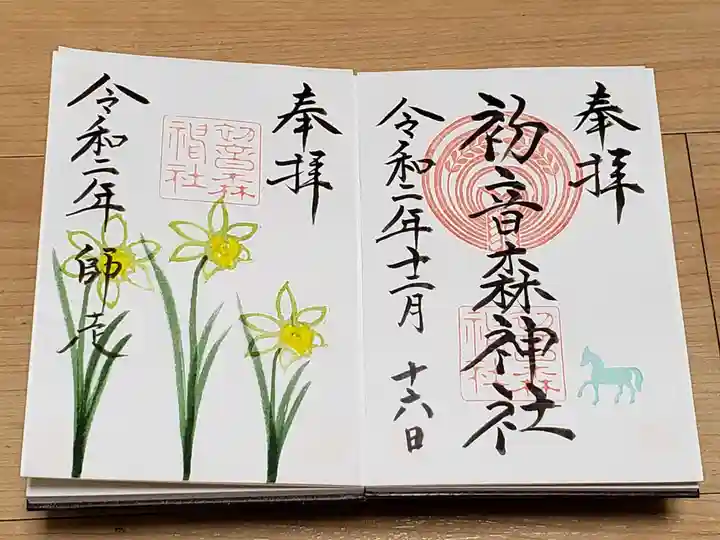 奉拝
初音森神社
令和二年十二月 十六日
奉拝
初音森
神社
令和二年 師走